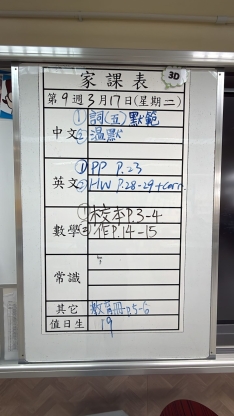 家課表
3D
第9週3月17日(星期二)
中文
①詞(五)默範
②溫默
英文
①PP P.23
②HW P.28-29+corr.
數學
①校本P.3-4
②作P.14-15
常識
其它
教育冊P.5-6
值日生
19